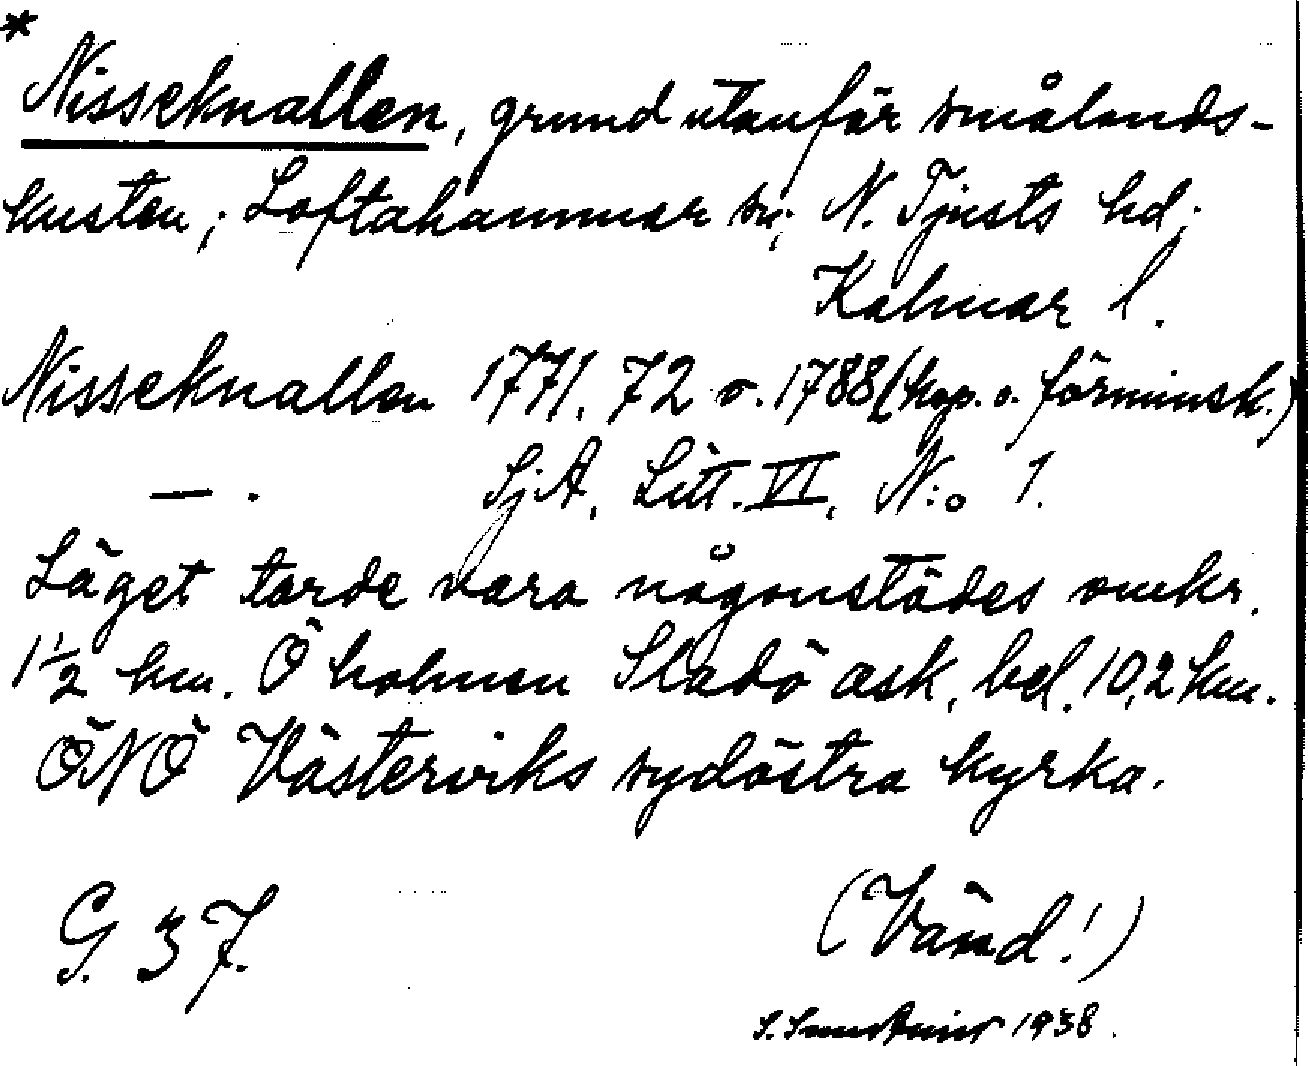 *
Nisseknallen, grund utanför smålands-
kusten; Loftahammar sn; N. Tjusts hd;
Kalmar l.
Nisseknallen 1771, 72 o. 1788 (kop. o. förminsk.)
— . SjA, Litt. VI, N:o 1.
Läget torde vara någonstädes omkr.
1½ km. Ö holmen Sladö ask, bel. 10,2 km.
ÖNÖ Västerviks sydöstra kyrka.
G. 37. (Vänd!)
S. 1938.